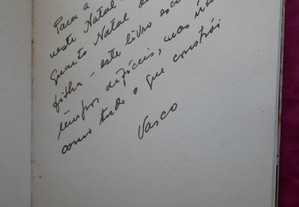 Para a
neste Natal
Quarto Natal de
filha - este livro esc
tempos difíceis, mas
como tudo o que constrói
Vasco